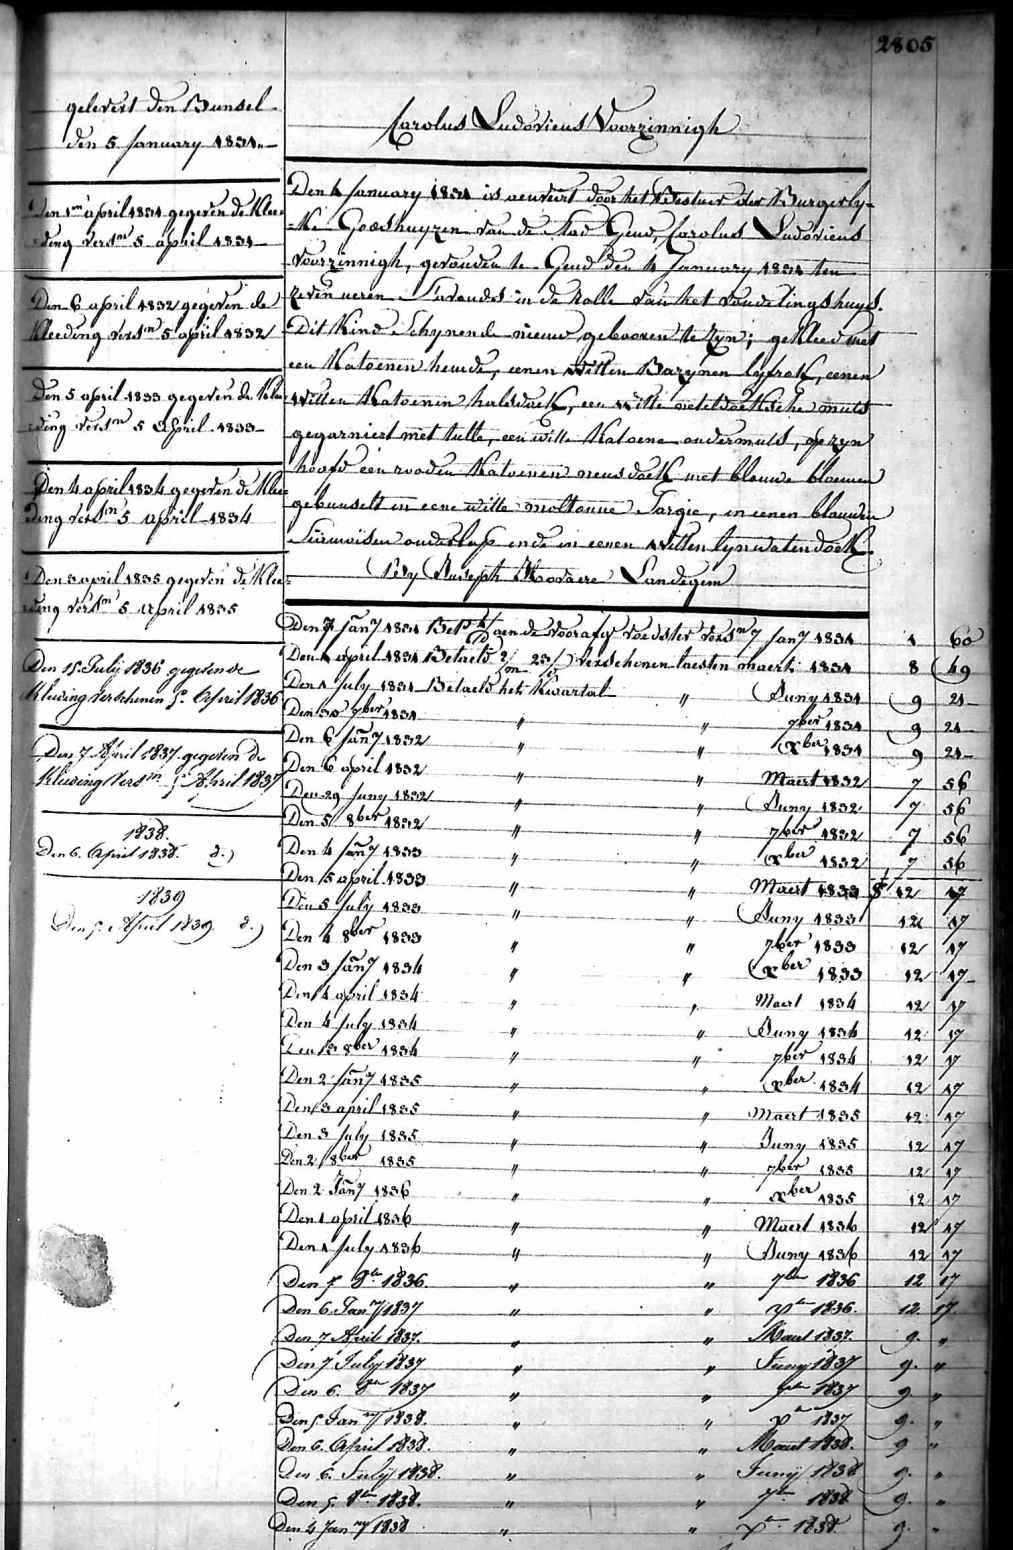 2805
gelevert den Bunsel
den 5 January 1831
Den 1en april 1831 gegeven de Klee-
ding versn 5 april 1831
Den 6 april 1832 gegeven de
Kleeding versn 5 april 1832
Den 5 april 1833 gegeven de Klee
ding versn 5 April 1833
Den 4 april 1834 gegeven de Klee
ding versn 5 april 1834
Den 3 april 1835 gegeven de Klee-
ding versn 5 april 1835
Den 15 July 1836 gegeven de
Kleeding verschenen 5 April 1836
Den 7 April 1837 gegeven de
Kleeding versn 5 April 1837
1838.
Den 6. April 1838. d.)
1839
Den 5 April 1839 d.)
Carolus Ludovicus Voorzinnigh
Den 4 January 1831 is aenveert door het Bestuer der Burgerly-
ke Godshuyzen van de Stad Gend, Carolus Ludovicus
Voorzinnigh, gevonden te Gend den 4 January 1831 ten
zeven ueren s'avonds in de rolle van het vondelingshuys.
Dit Kind schynende nieuw gebooren te zyn; gekleed met
een Katoenen hemde, eenen witten Bazynen lyfrok, eenen
witten Katoenen halsdoek, een witte neteldoeksche muts
gegarniert met tulle, een witte Katoene ondermuts, op zyn
hoofd een rooden Katoenen neusdoek met blauwe bloemen
gebunselt in eene witte moltonne Sargie, in eenen blauwen
Siamoisen onderlap ende in eenen witten lynwaten doek
Bey Joseph Landegem
Den 7 Jany 1831 Bet aen de voorafge voedster versn 7 Jany 1831 1 60
Den 1 april 1831 Betaelt 2/m 23/ verschenen laesten maert 1831 8 49
Den 1 July 1831 Betaelt het Kwartal " Juny 1831 9 21
Den 30 7ber 1831 " " 7ber 1831 9 21
Den 6 Jany 1832 " " Xber 1831 9 21
Den 6 april 1832 " " Maert 1832 7 56
Den 29 Juny 1832 " " Juny 1832 7 56
Den 5 8ber 1832 " " 7ber 1832 7 56
Den 4 Jany 1833 " " Xber 1832 7 56
Den 5 april 1833 " " Maert 1833 12 17
Den 5 July 1833 " " Juny 1833 12 17
Den 4 8ber 1833 " " 7ber 1833 12 17
Den 3 Jany 1834 " " Xber 1833 12 17
Den 4 april 1834 " " Maert 1834 12 17
Den 4 July 1834 " " Juny 1834 12 17
Den 13 8ber 1834 " " 7ber 1834 12 17
Den 2 Jany 1835 " " Xber 1834 12 17
Den 3 april 1835 " " Maert 1835 12 17
Den 3 July 1835 " " Juny 1835 12 17
Den 2 8ber 1835 " " 7ber 1835 12 17
Den 2 Jany 1836 " " Xber 1835 12 17
Den 1 april 1836 " " Maert 1836 12 17
Den 1 July 1836 " " Juny 1836 12 17
Den 7 8be 1836 " " 7ber 1836 12 17
Den 6 Jany 1837 " " Xbr 1836. 12. 17
Den 7 April 1837. " " Maert 1837. 9. "
Den 7 July 1837 " " Juny 1837 9. "
Den 6. 8ber 1837 " " 7ber 1837 9. "
Den 5 Jany 1838. " " Xbr 1837 9. "
Den 6. April 1838. " " Maert 1838. 9 "
Den 6. July 1838. " " Juny 1838 9. "
Den 5. 8br 1838. " " 7br 1838 9. "
Den 4 Jany 1838 " " Xbr 1838. 9. "